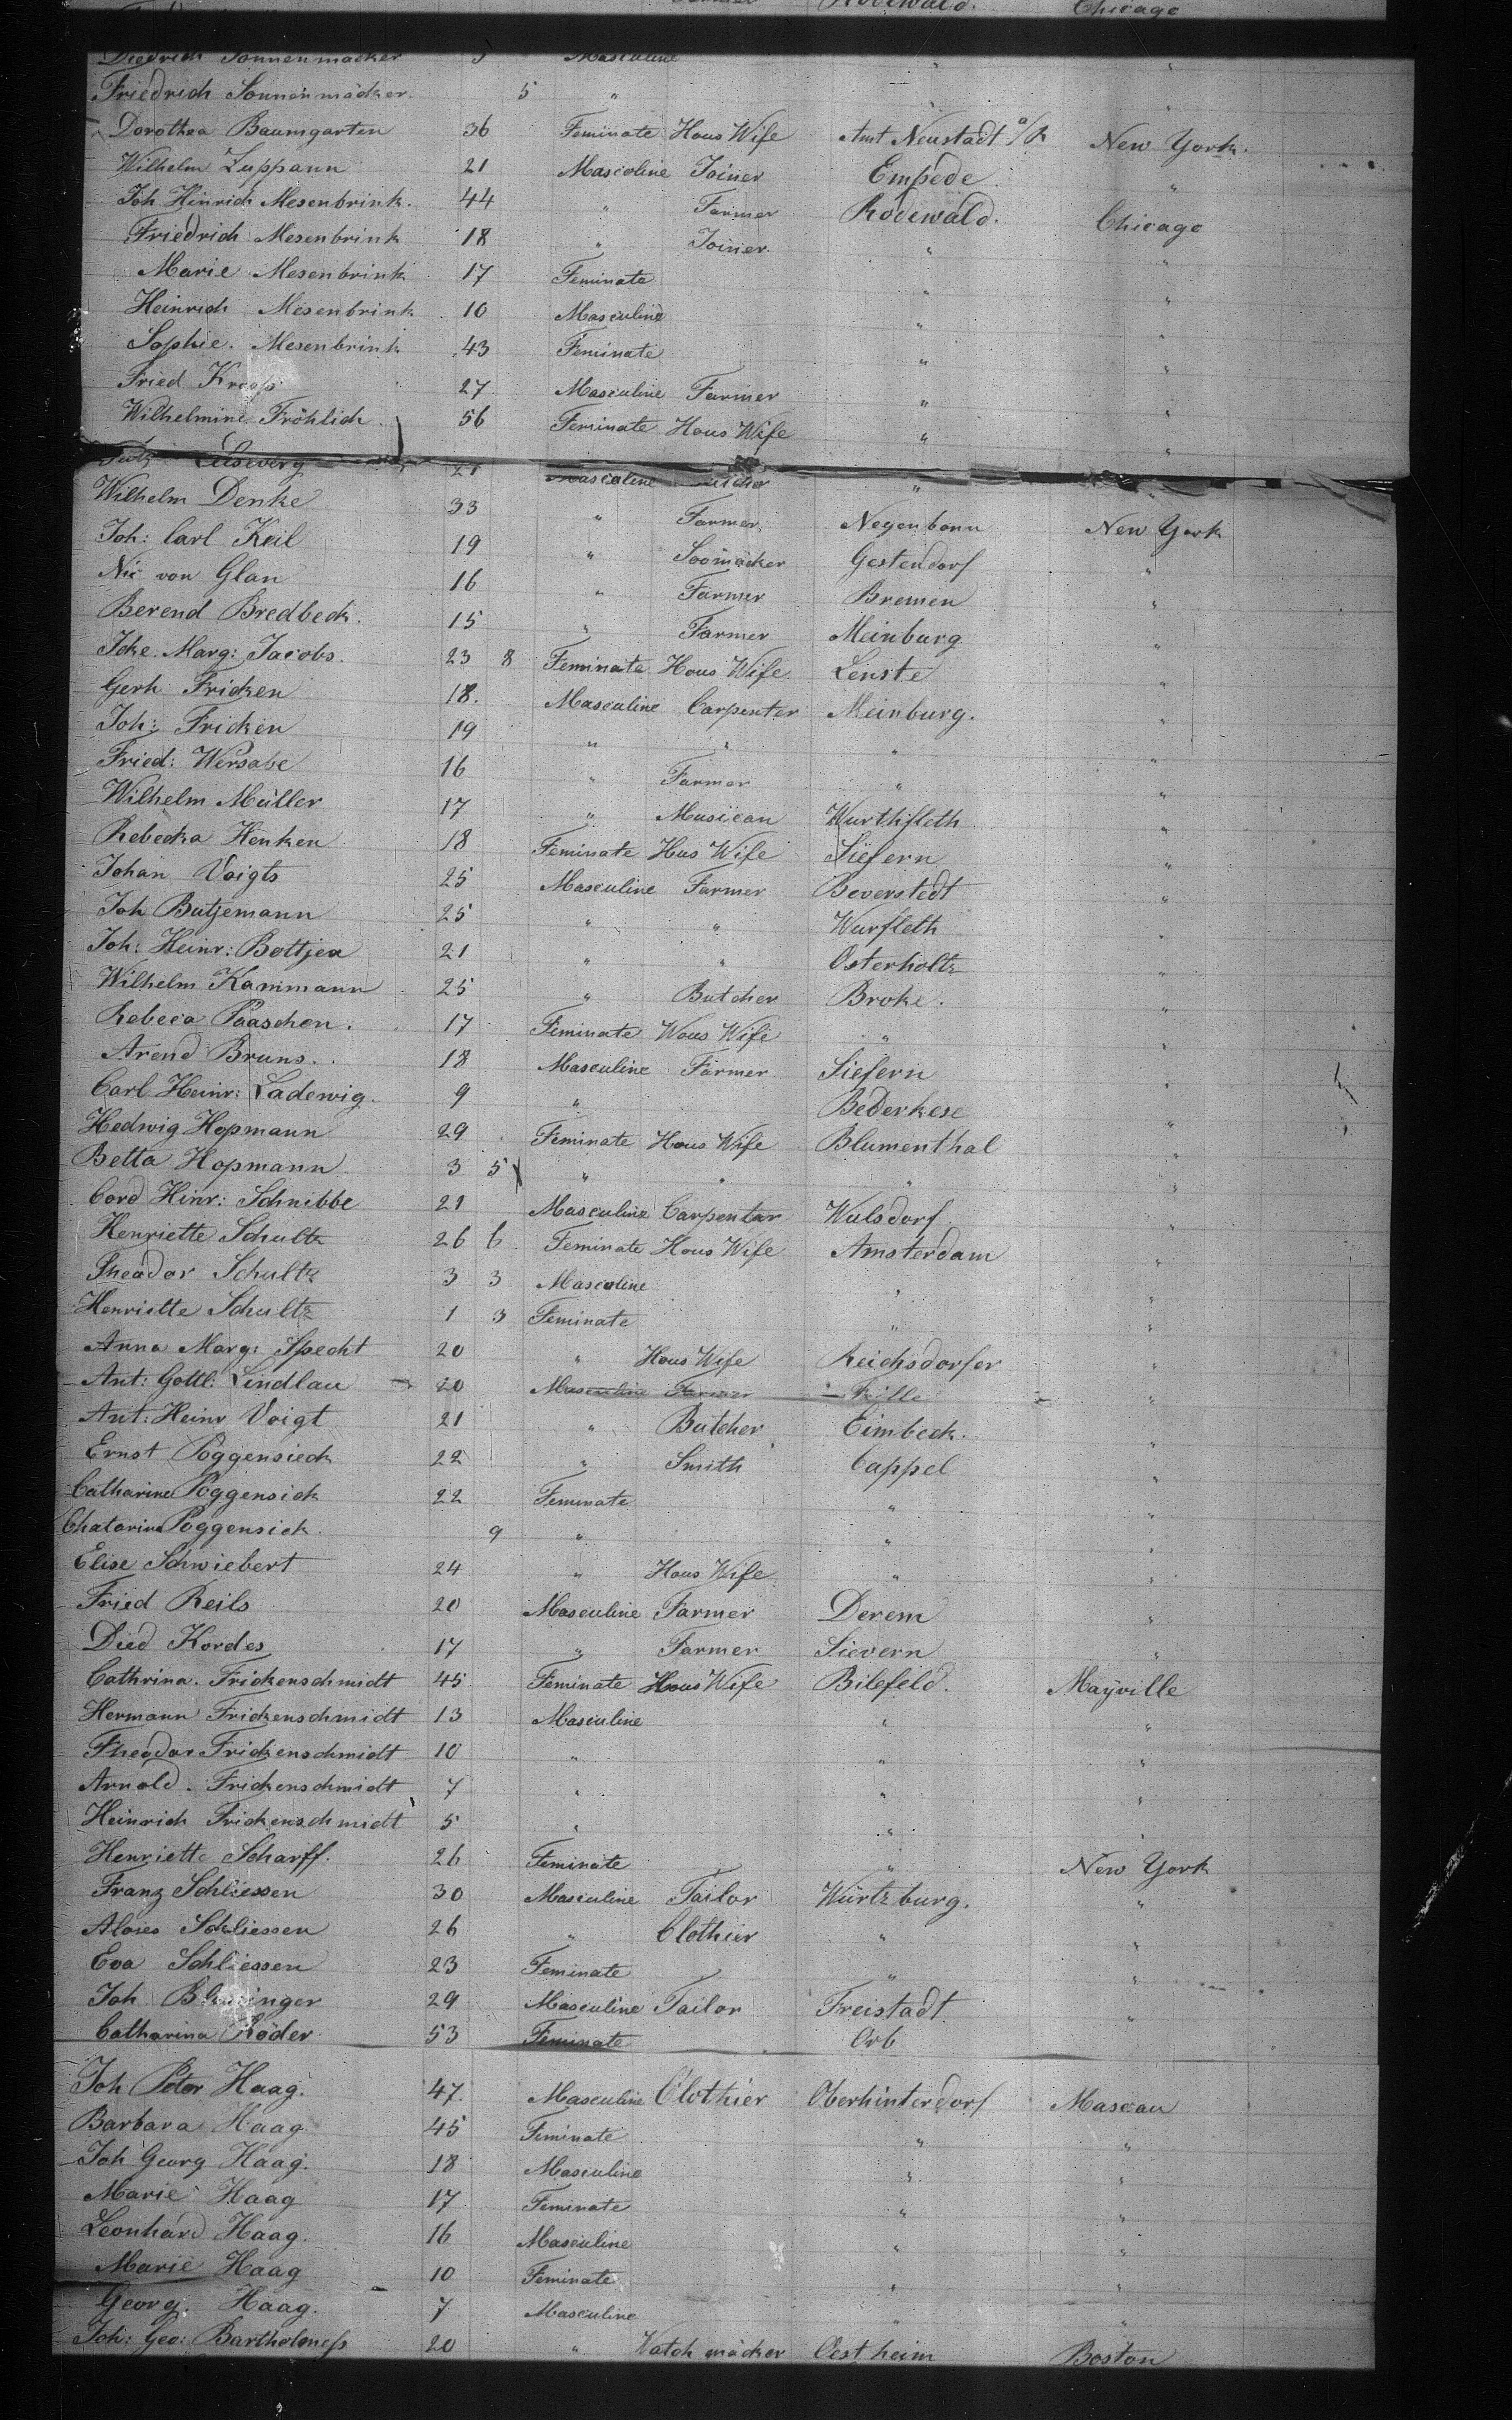 Rodewald. Chicago
Diedrich Sonnenmäcker 3 Masculine " "
Friedrich Sonnenmäcker. 5 " " "
Dorothea Baumgarten 36 Feminate Hous Wife Amt Neustadt a/R New York.
Wilhelm Luppann 21 Masculine Joiner Empede "
Joh Hinrich Mesenbrink. 44 " Farmer Rodewald. Chicago
Friedrich Mesenbrink 18 " Joiner. " "
Marie Mesenbrink 17 Feminate " "
Heinrich Mesenbrink 10 Masculine " "
Sophie. Mesenbrink 43 Feminate " "
Fried 27 Masculine Farmer " "
Wilhelmine Fröhlich. 56 Feminate Hous Wife " "
21 Masculine "
Wilhelm Denke 33 " Farmer. Negenbonn New York
Joh: Carl Keil 19 " Soomäcker Gestendorf "
Nic von Glan 16 " Farmer Bremen "
Berend Bredbeck. 15 " Farmer Meinburg "
Icke. Marg: Jacobs. 23 8 Feminate Hous Wife Lenste "
Gerh Fricken 18. Masculine Carpenter Meinburg. "
Joh: Fricken 19 " " " "
Fried: Wersabe 16 " Farmer " "
Wilhelm Müller 17 " Musican Wurthfleth "
Rebecka Henken 18 Feminate Hus Wife Siefern "
Johan Voigts 25 Masculine Farmer Beverstedt "
Joh Butjemann 25 " " Wurfleth "
Joh: Heinr: Bottjer 21 " " Osterholtz "
Wilhelm Kammann 25 " Butcher Broke. "
Rebeca Paaschen. 17 Feminate Wous Wife " "
Arend Bruns. 18 Masculine Farmer Siefern "
Carl Heinr: Ladewig. 9 " Bederkese "
Hedwig Hopmann 29 Feminate Hous Wife Blumenthal "
Betta Hopmann 3 5 " " " "
Cord Hinr: Schnibbe 21 Masculine Carpentar Wulsdorf "
Henriette Schultz 26 6 Feminate Hous Wife Amsterdam "
Theador Schultz 3 3 Masculine " "
Henriette Schultz 1 3 Feminate " "
Anna Marg: Specht 20 " Hous Wife Reichsdorfer "
Ant: Gottl: Lindlau 20 Masculine Farmer Frille "
Ant: Heinr Voigt 21 " Butcher Eimbeck. "
Ernst Poggensieck 22 " Smith Cappel "
Catharine Poggensick 22 Feminate " "
Chatarina Poggensick. 9 " " "
Elise Schwiebert 24 " Hous Wife " "
Fried Reils 20 Masculine Farmer Derem "
Died Kordes 17 " Farmer Sievern "
Cathrina. Frickenschmidt 45 Feminate Hous Wife Bilefeld. Mayville
Hermann Frickenschmidt 13 Masculine " "
Theodor Frickenschmidt 10 " " "
Arnold. Frickenschmidt 7 " " "
Heinrich Frickenschmidt 5 " " "
Henriette Scharff. 26 Feminate " New York
Franz Schliessen 30 Masculine Tailor Würtzburg. "
Alois Schliessen 26 " Clothier " "
Eva Schliessen 23 Feminate " "
Joh 29 Masculine Tailor Freistadt "
Catharina Röder 53 Feminate Orb
Joh Peter Haag. 47 Masculine Clothier Oberhinterdorf Mascau
Barbara Haag 45 Feminate " "
Joh Georg Haag. 18 Masculine " "
Marie Haag 17 Feminate " "
Leonhard Haag. 16 Masculine " "
Marie Haag 10 Feminate " "
Georg. Haag. 7 Masculine " "
Joh: Geo: Bartholmess 20 " Watch mäcker Oestheim Boston